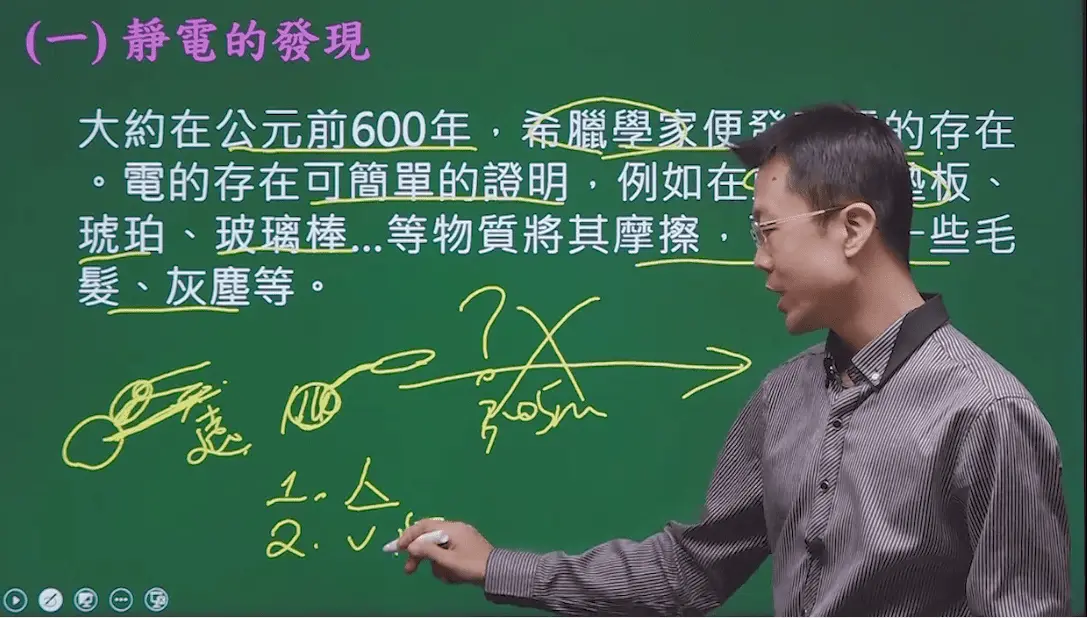 (一) 靜電的發現
大約在公元前600年，希臘學家便發 的存在
。電的存在可簡單的證明，例如在 墊板、
琥珀、玻璃棒...等物質將其摩擦， 一些毛
髮、灰塵等。
?
1.
2. v